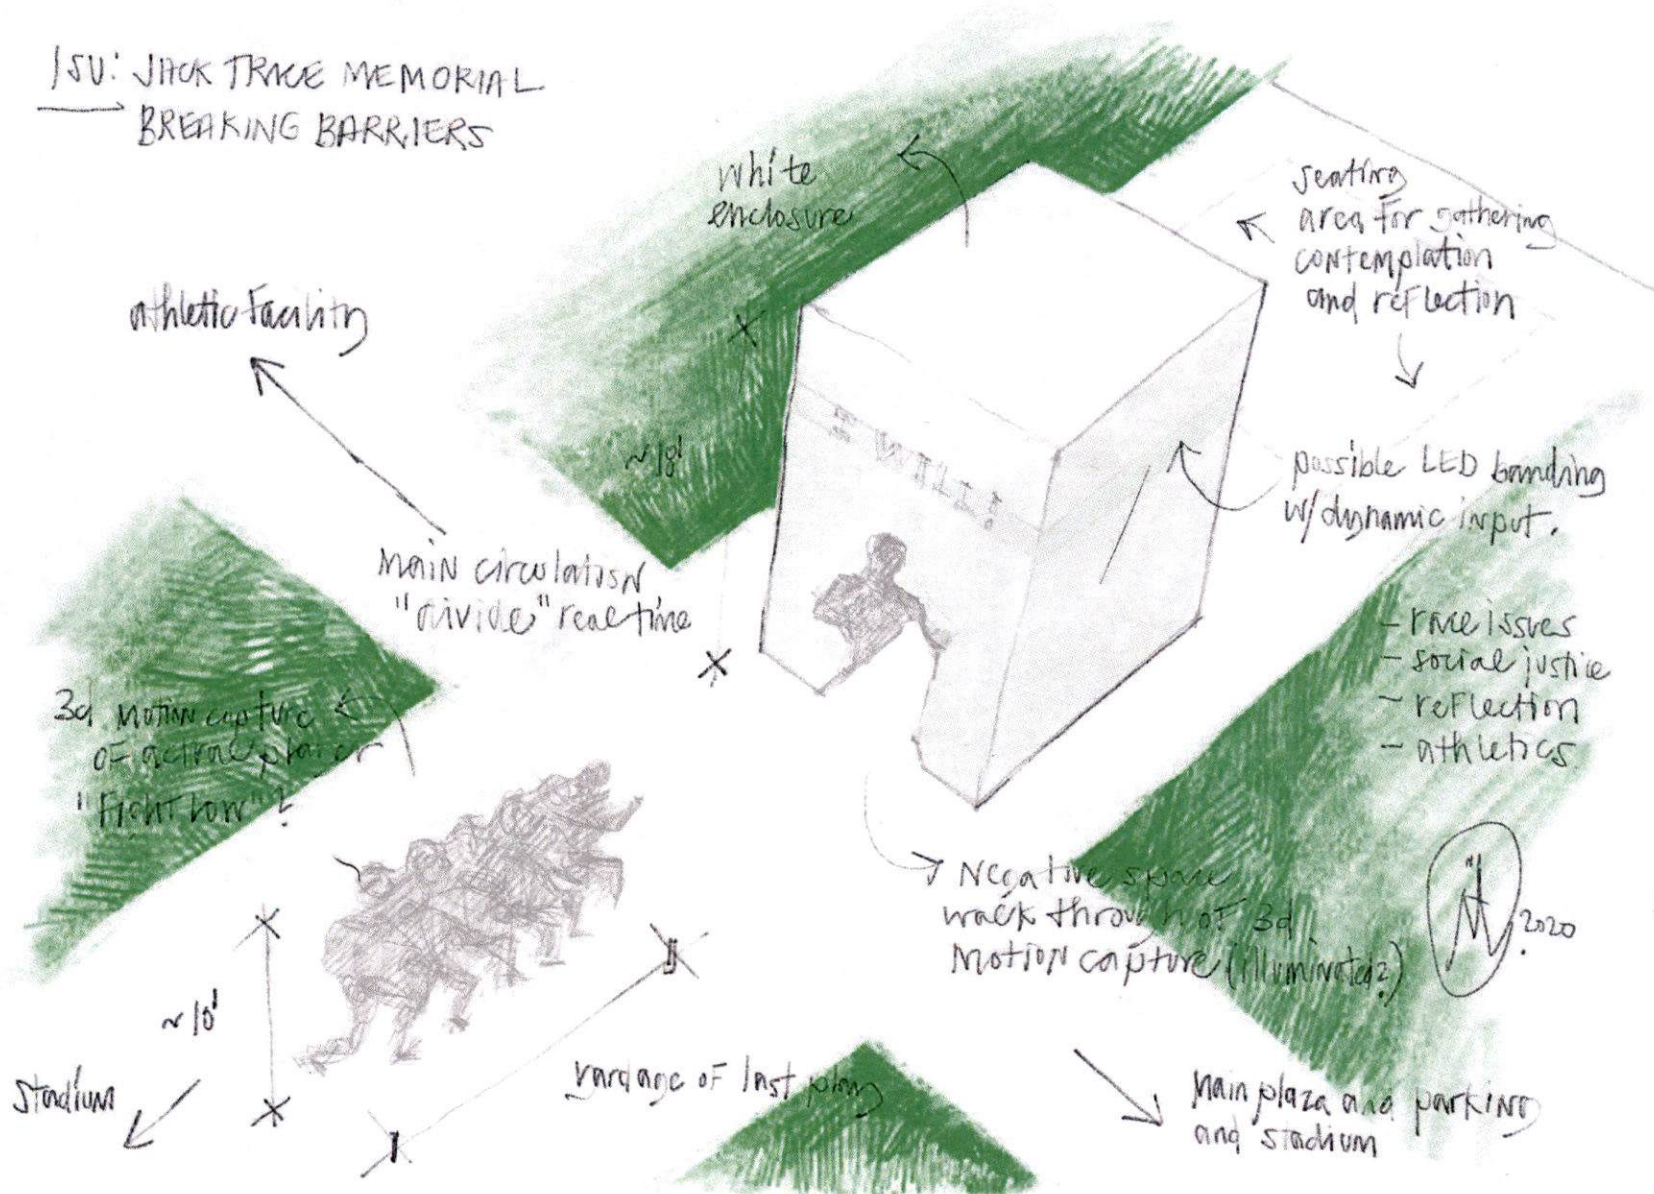 ISU: JACK TRICE MEMORIAL
BREAKING BARRIERS
white
enclosure
seating
area for gathering
contemplation
and reflection
athletic facility
~18'
I WILL!
possible LED banding
w/dynamic input.
main circulation
"divide" real time
- race issues
- social justice
- reflection
- athletics
3d motion capture
of actual player
"Fight low"?
Negative space
walk through of 3d
motion capture (illuminated?)
2020
~10'
stadium
yardage of last play
main plaza and parking
and stadium